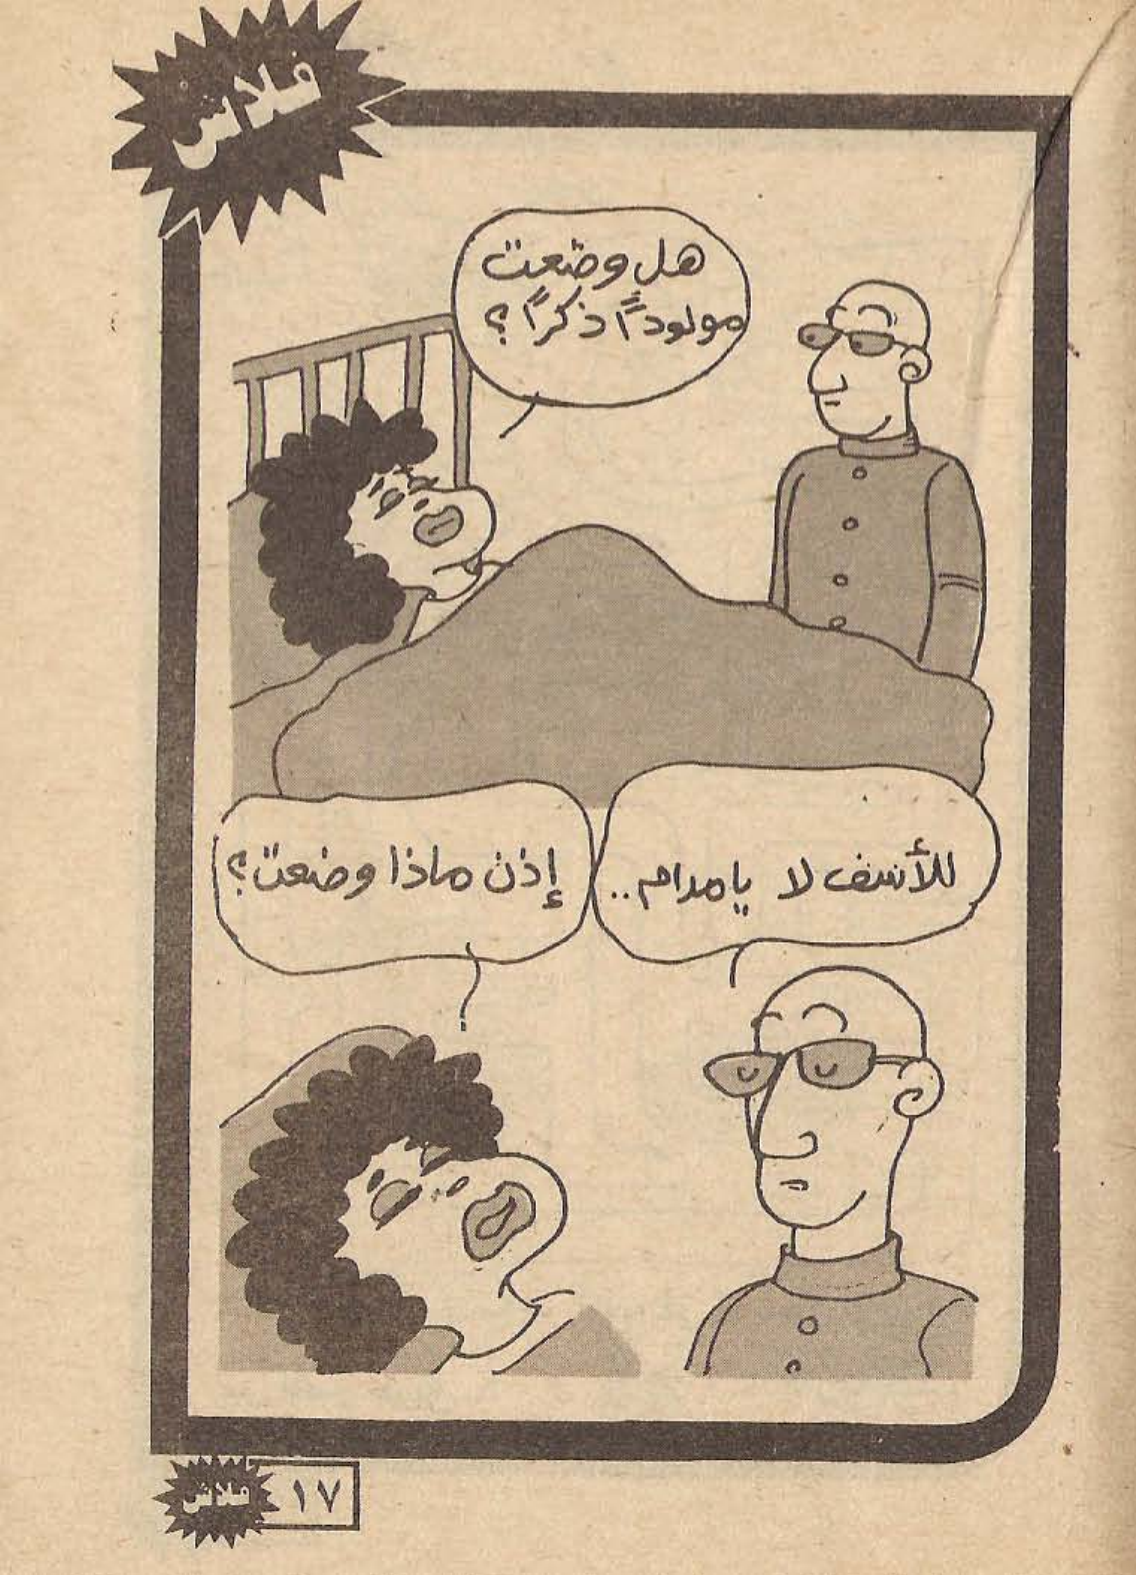 فلاش
هل وضعت
مولوداً ذكراً ؟
للأسف لا يا مدام ..
إذن ماذا وضعت ؟
فلاش
١٧